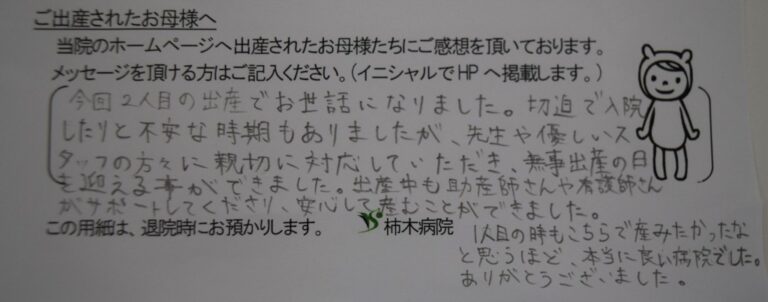 ご出産されたお母様へ
当院のホームページへ出産されたお母様たちにご感想を頂いております。
メッセージを頂ける方はご記入ください。(イニシャルでHPへ掲載します。)
今回2人目の出産でお世話になりました。切迫で入院
したりと不安な時期もありましたが、先生や優しいス
タッフの方々に親切に対応していただき、無事出産の日
を迎える事ができました。出産中も助産師さんや看護師さん
がサポートしてくださり、安心して産むことができました。
この用紙は、退院時にお預かりします。
柿木病院
1人目の時もこちらで産みたかったな
と思うほど、本当に良い病院でした。
ありがとうございました。